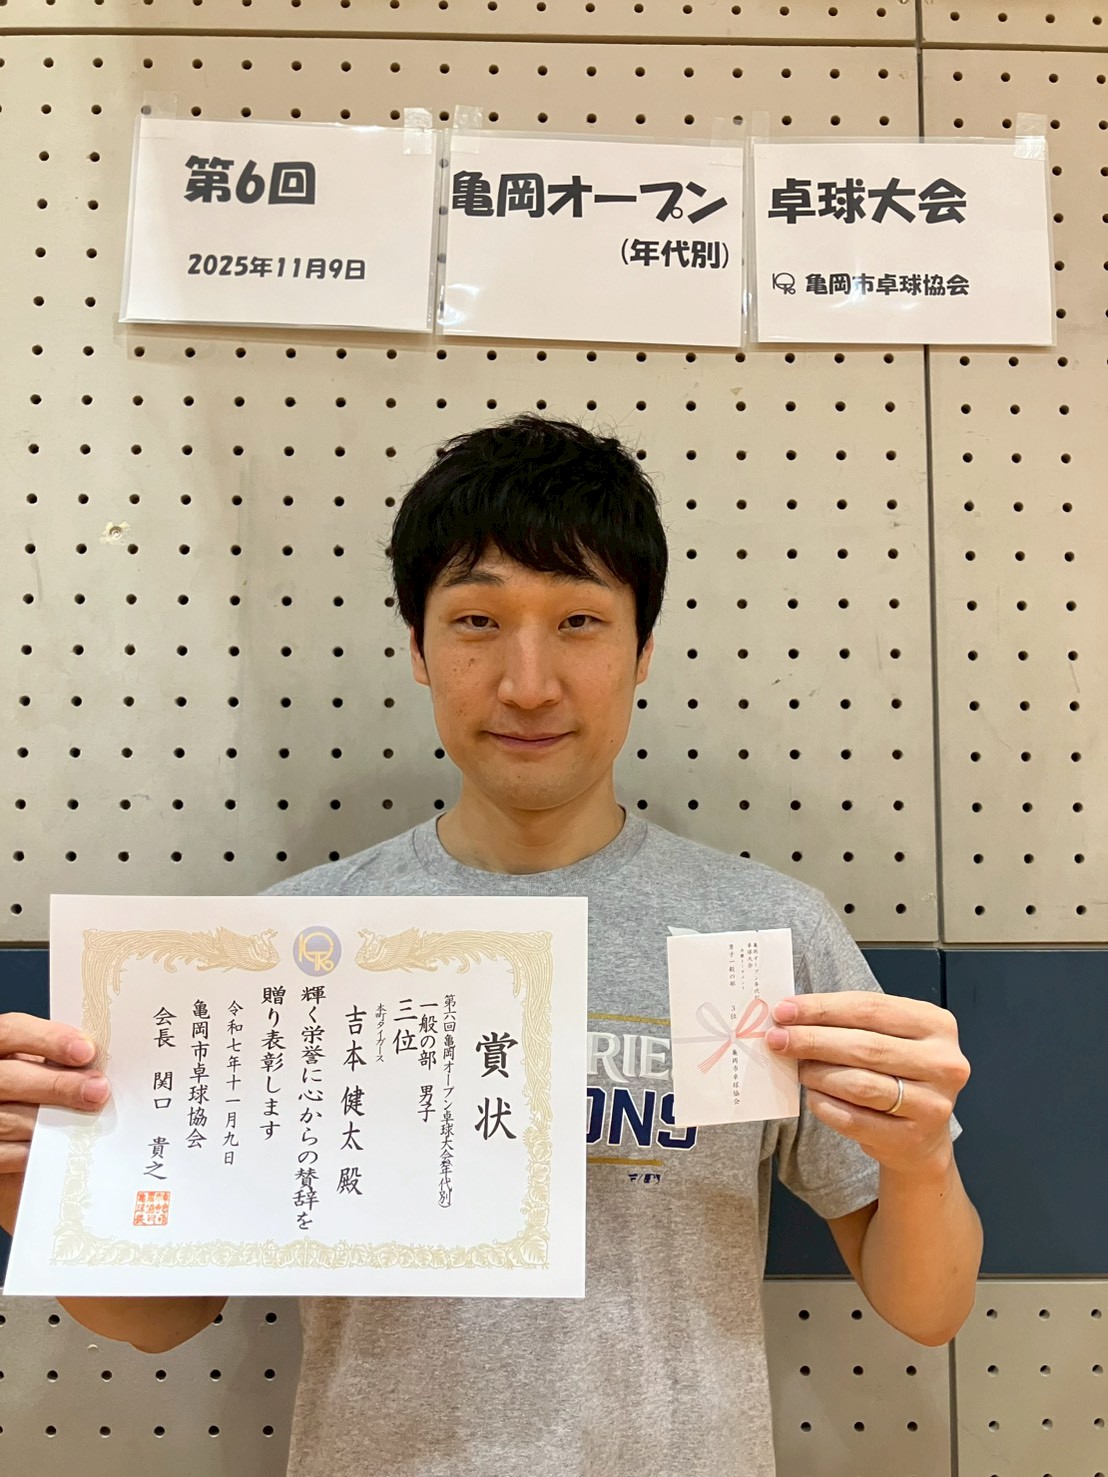 第6回
2025年11月9日
亀岡オープン
(年代別)
卓球大会
亀岡市卓球協会
賞状
第六回亀岡オープン卓球大会(年代別)
一般の部 男子
三位
本町タイガース
吉本 健太 殿
輝く栄誉に心からの賛辞を
贈り表彰します
令和七年十一月九日
亀岡市卓球協会
会長 関口 貴之
亀岡オープン年代
卓球大会
男子一般の部
3位
亀岡市卓球協会
RIE
ONS